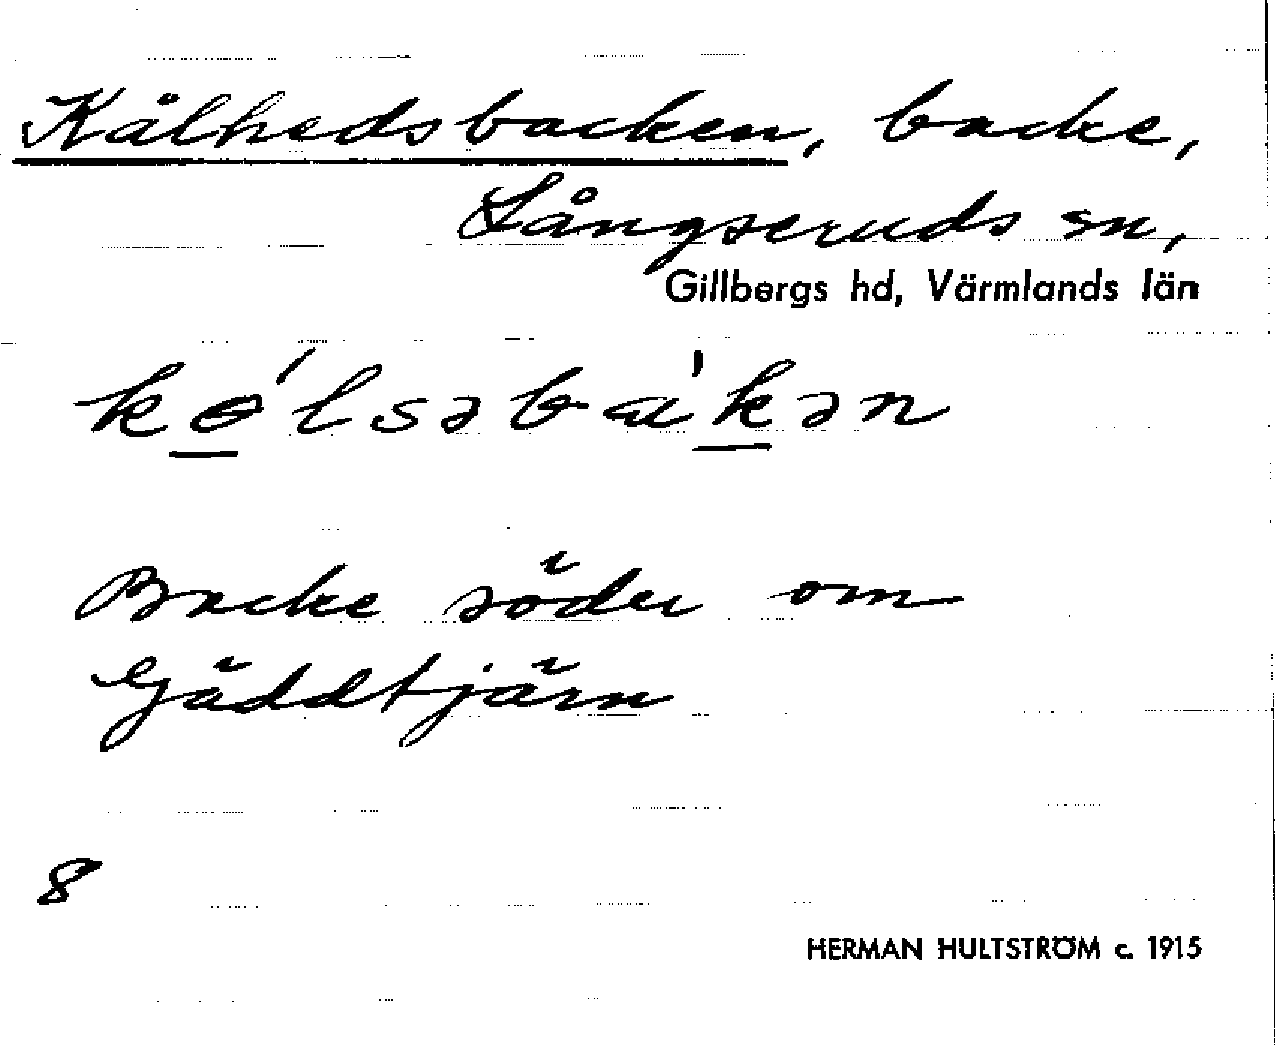 Kålhedsbacken, backe,
Långseruds sn,
Gillbergs hd, Värmlands län
kɵ́lsəbàkən
Backe söder om
Gäddtjärn
8
HERMAN HULTSTRÖM c. 1915